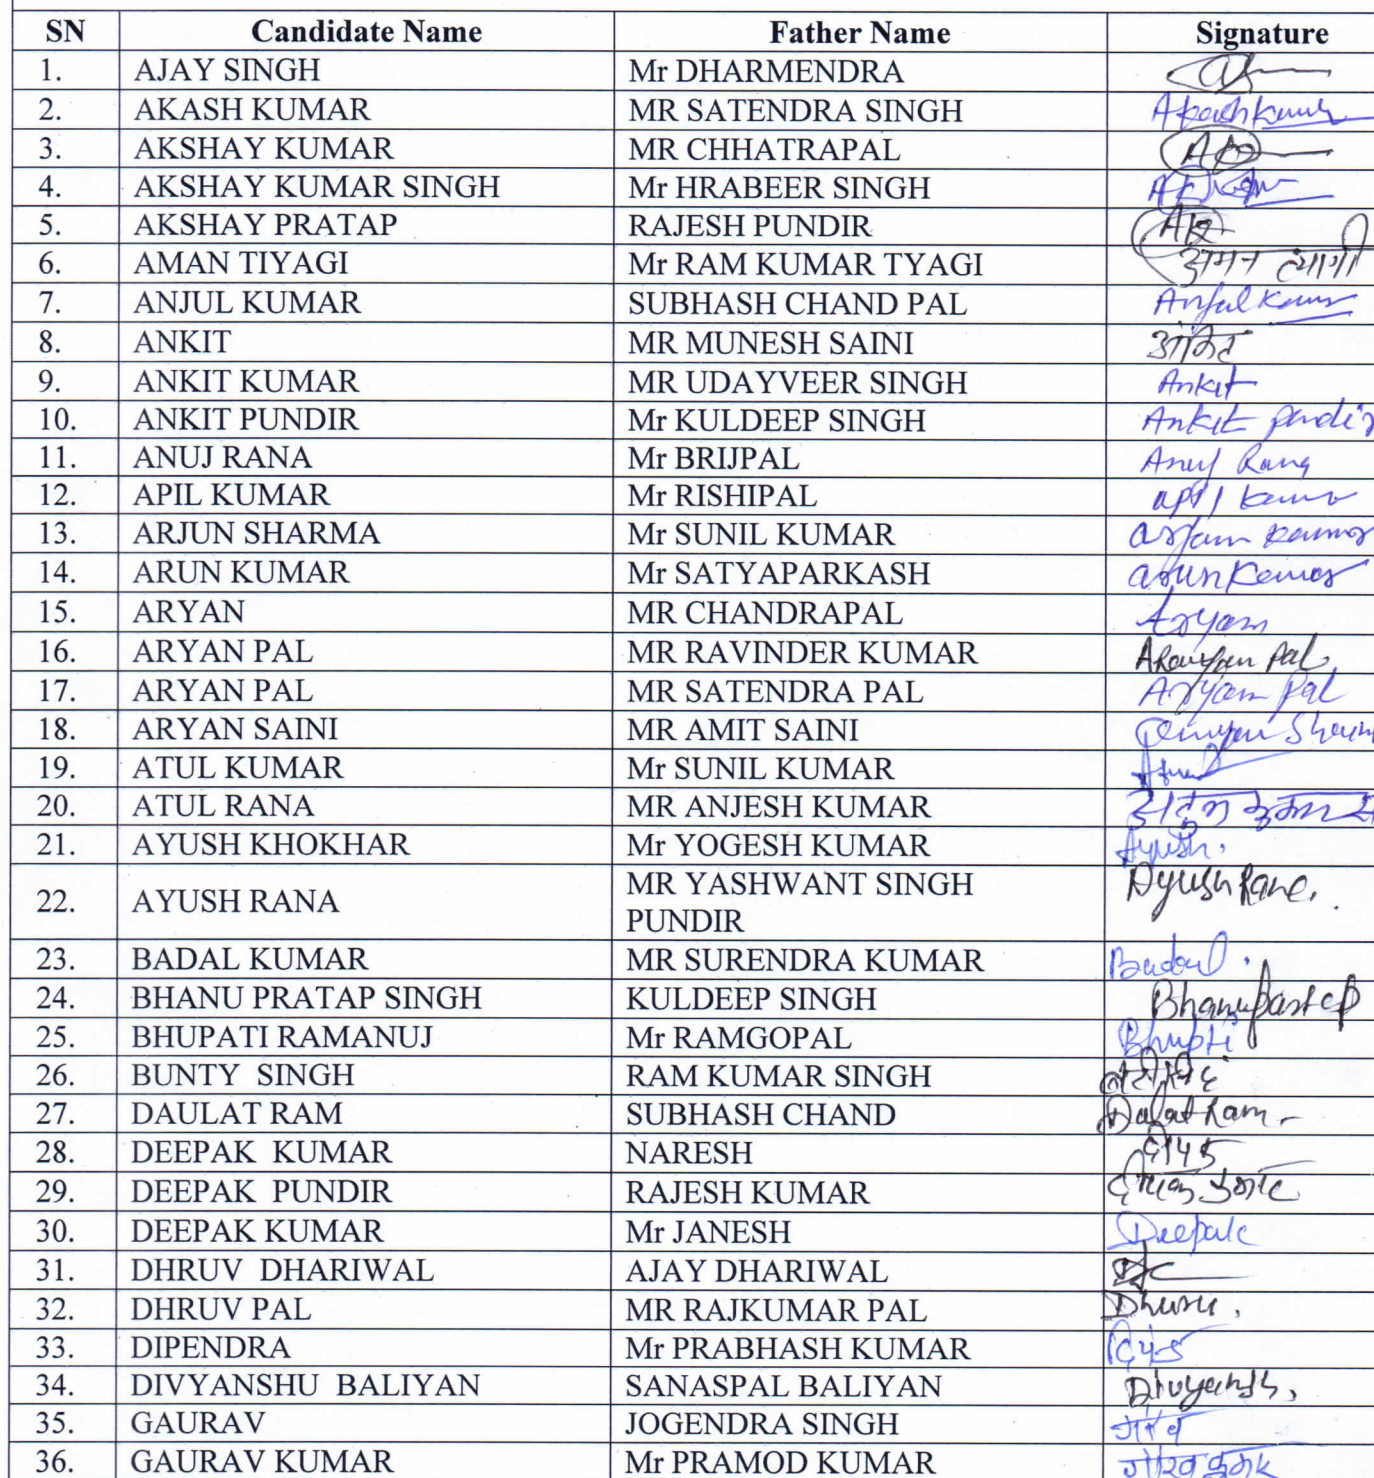 SN Candidate Name Father Name Signature
1. AJAY SINGH Mr DHARMENDRA
2. AKASH KUMAR MR SATENDRA SINGH Akashkumar
3. AKSHAY KUMAR MR CHHATRAPAL
4. AKSHAY KUMAR SINGH Mr HRABEER SINGH
5. AKSHAY PRATAP RAJESH PUNDIR
6. AMAN TIYAGI Mr RAM KUMAR TYAGI अमन त्यागी
7. ANJUL KUMAR SUBHASH CHAND PAL Anjul Kumar
8. ANKIT MR MUNESH SAINI अंकित
9. ANKIT KUMAR MR UDAYVEER SINGH Ankit
10. ANKIT PUNDIR Mr KULDEEP SINGH Ankit pundir
11. ANUJ RANA Mr BRIJPAL Anuj Rana
12. APIL KUMAR Mr RISHIPAL apil kumar
13. ARJUN SHARMA Mr SUNIL KUMAR arjun kumar
14. ARUN KUMAR Mr SATYAPARKASH arun kumar
15. ARYAN MR CHANDRAPAL Aryan
16. ARYAN PAL MR RAVINDER KUMAR Pal
17. ARYAN PAL MR SATENDRA PAL Aryan Pal
18. ARYAN SAINI MR AMIT SAINI
19. ATUL KUMAR Mr SUNIL KUMAR
20. ATUL RANA MR ANJESH KUMAR
21. AYUSH KHOKHAR Mr YOGESH KUMAR Ayush.
22. AYUSH RANA MR YASHWANT SINGH PUNDIR Ayush Rana.
23. BADAL KUMAR MR SURENDRA KUMAR Badal.
24. BHANU PRATAP SINGH KULDEEP SINGH
25. BHUPATI RAMANUJ Mr RAMGOPAL Bhupti
26. BUNTY SINGH RAM KUMAR SINGH
27. DAULAT RAM SUBHASH CHAND Dalat Ram
28. DEEPAK KUMAR NARESH दीपक
29. DEEPAK PUNDIR RAJESH KUMAR दीपक कुमार
30. DEEPAK KUMAR Mr JANESH Deepak
31. DHRUV DHARIWAL AJAY DHARIWAL
32. DHRUV PAL MR RAJKUMAR PAL
33. DIPENDRA Mr PRABHASH KUMAR
34. DIVYANSHU BALIYAN SANASPAL BALIYAN
35. GAURAV JOGENDRA SINGH
36. GAURAV KUMAR Mr PRAMOD KUMAR गौरव कुमार